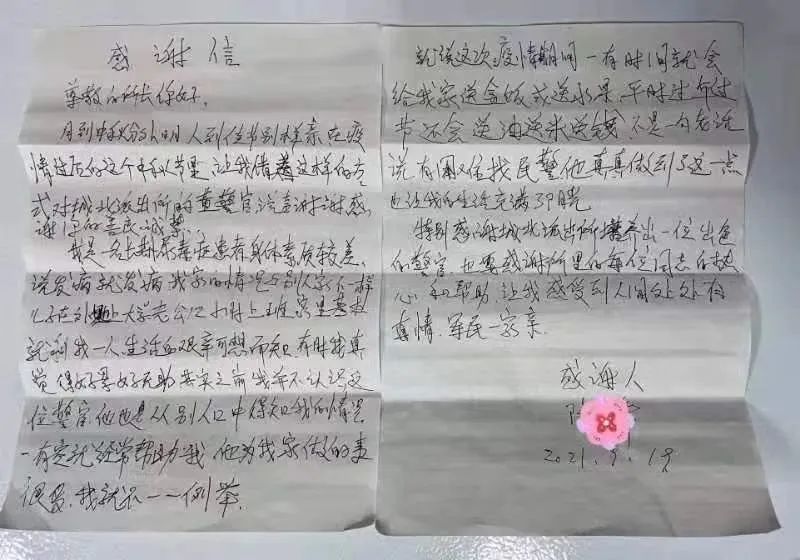 感谢信
尊敬的所长你好.
月到中秋分外明人到佳节别样亲在疫
情过后的这个中秋节里,让我借着这样的方
式对城北派出所的董警官说声谢谢感
谢你的善良真诚,
我是一名长期尿毒症患者身体素质较差,
说发病就发病我家的情况与别人家不一样
儿子在外地上大学老公12小时上班家里基本
就剩我一人生活的艰辛可想而知有时我真
觉得好累好无助其实之前我并不认识这
位警官他也是从别人口中得知我的情况
一有空就经常帮助我,他为我家做的事
很多,我就不一一例举,
就说这次疫情期间一有时间就会
给我家送盒饭或送水果,平时过年过
节还会送油送米送钱不是一句老话
说有困难找民警他真真做到了这一点
也让我的生活充满了阳光
特别感谢城北派出所培养出一位出色
的警官,也要感谢所里的每位同志的热
心和帮助,让我感受到人间处处有
真情.军民一家亲.
感谢人
陈
2021.9.19